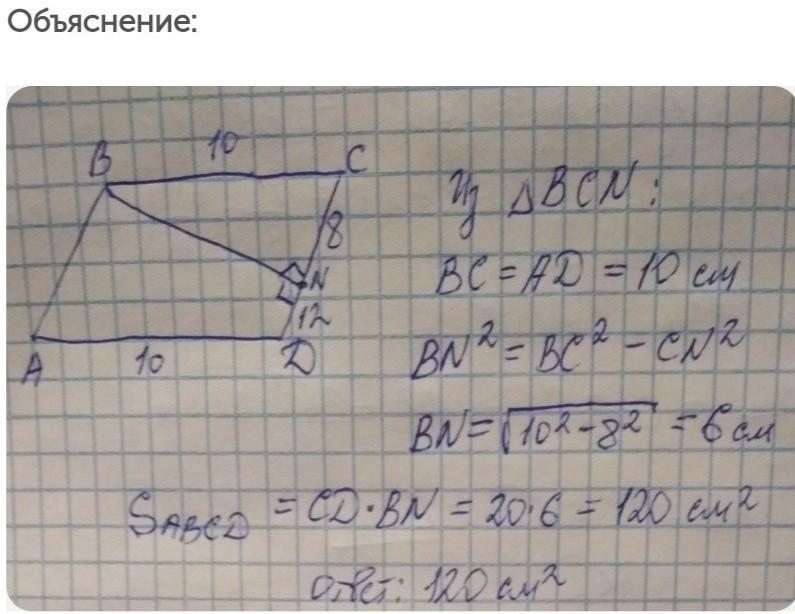 Объяснение:
B 10 C
8
N
12
A 10 D
Из ΔBCN:
BC = AD = 10 см
BN² = BC² - CN²
BN = √10²-8² = 6 см
SABCD = CD·BN = 20·6 = 120 см²
ответ: 120 см²